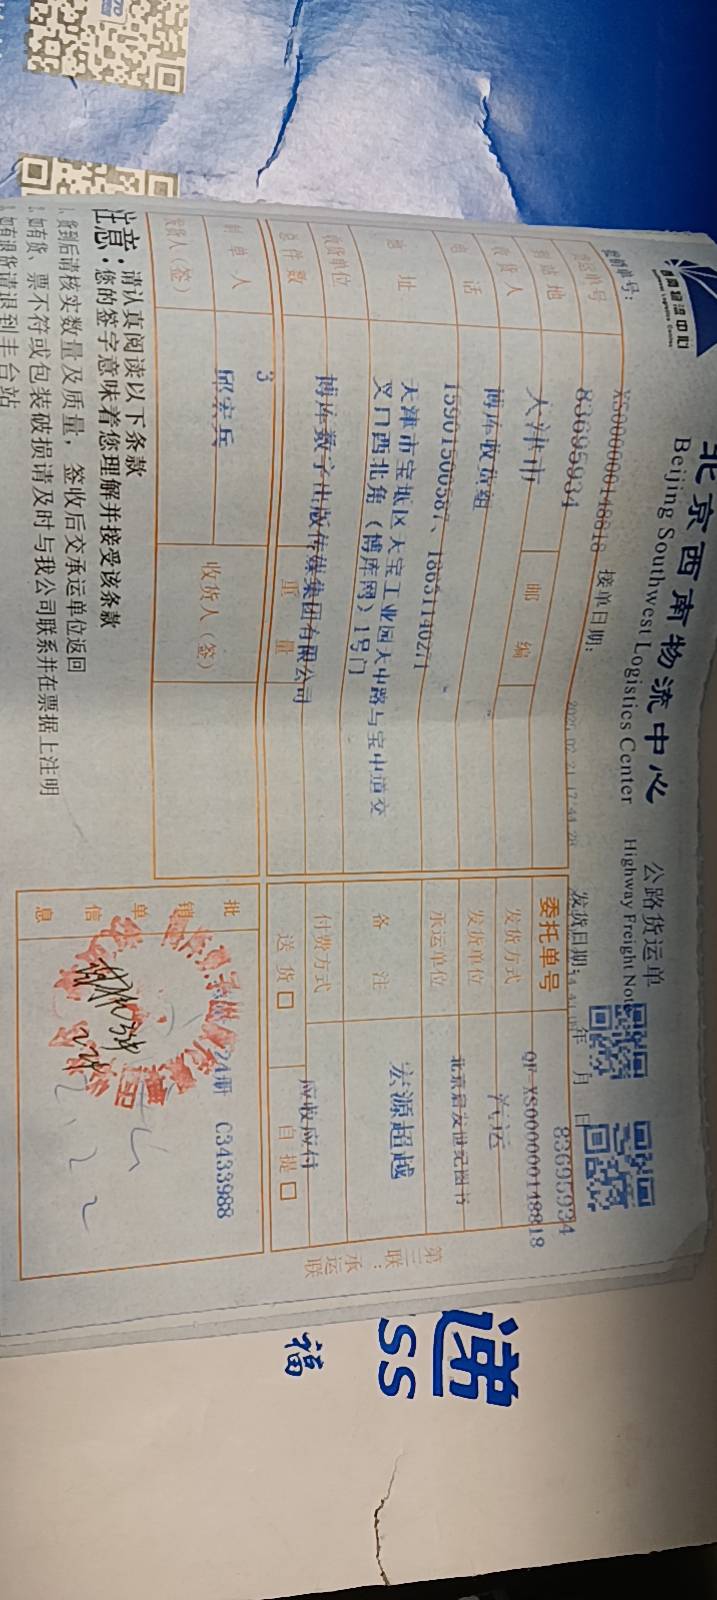 西南物流中心
北京西南物流中心 公路货运单
Beijing Southwest Logistics Center Highway Freight Note
XS0000000148818 接单日期： 发货日期： 年 月 日
83695934
83695934 委托单号 QF-XS0000000148818
天津市 邮编 发货方式 汽运
收货人 博库收货组 发货单位 北京启发世纪图书
电话 15901500587、18631140271 承运单位
地址 天津市宝坻区天宝工业园天中路与宝中道交
叉口西北角（博库网）1号门
备注 宏源超越
收货单位 博库数字出版传媒集团有限公司 付费方式 应收应付
总件数 3 重量 送货 □ 自提 □
制单人 邱宏兵
发货人（签） 收货人（签）
批销单信息 24册 C3433988
第三联：承运联
注意：请认真阅读以下条款
您的签字意味着您理解并接受该条款
1、货到后请核实数量及质量，签收后交承运单位返回
2、如有货、票不符或包装破损请及时与我公司联系并在票据上注明
3、如有退货请退到丰台站
递
SS
福